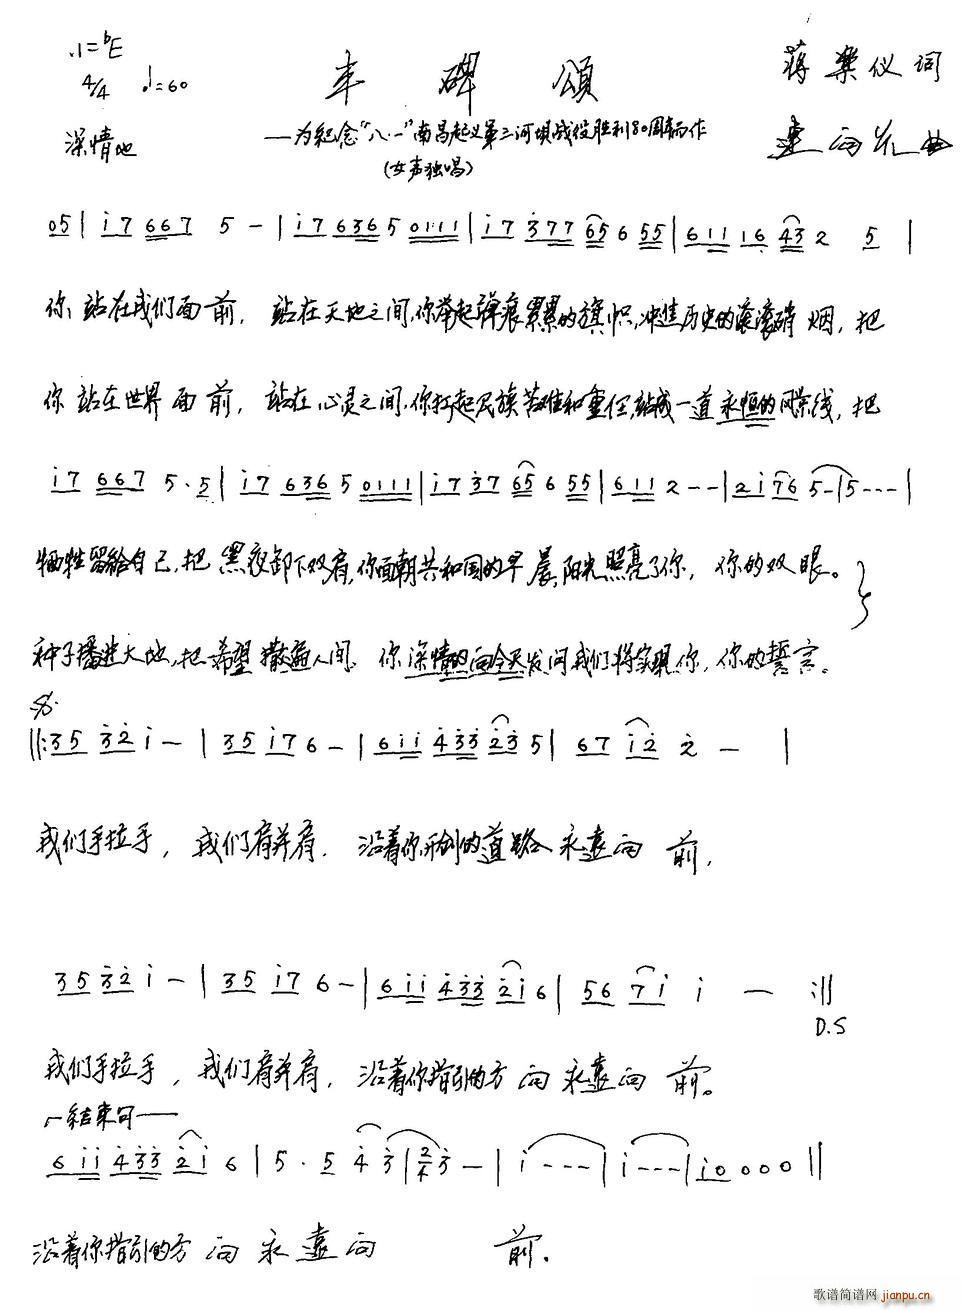 1=ᵇE
4/4 ♩=60
深情地
丰碑颂
—为纪念“八·一”南昌起义第三河坝战役胜利80周年而作
(女声独唱)
蒋乐仪 词
曲
05 | i7 667 5 - | i7 6365 0111 | i7 377 65 6 55 | 611 16 43 2 5 |
你站在我们面前，站在天地之间，你举起弹痕累累的旗帜，冲进历史的滚滚硝烟，把
你站在世界面前，站在心灵之间，你扛起民族苦难和重任，站成一道永恒的风景线，把
i7 667 5·5 | i7 6365 0111 | i7 37 65 6 55 | 611 2 - - | 2i76 5 - | 5 - - - |
牺牲留给自己，把黑夜卸下双肩，你面朝共和国的早晨，阳光照亮了你，你的双眼。
种子播进大地，把希望撒遍人间，你深情的向今天发问我们将实现你，你的誓言。
‖: 35 32 i - | 35 i7 6 - | 6ii 433 23 5 | 67 i2 2 - |
我们手拉手，我们肩并肩，沿着你开创的道路永远向前，
35 32 i - | 35 i7 6 - | 6ii 433 2i 6 | 56 7i i - :‖
D.S
我们手拉手，我们肩并肩，沿着你指引的方向永远向前。
结束句
6ii 433 2i 6 | 5·5 4 3 | 2/4 3 - | i - - - | i - - - | i0000 ‖
沿着你指引的方向永远向前.
歌谱简谱网 jianpu.cn